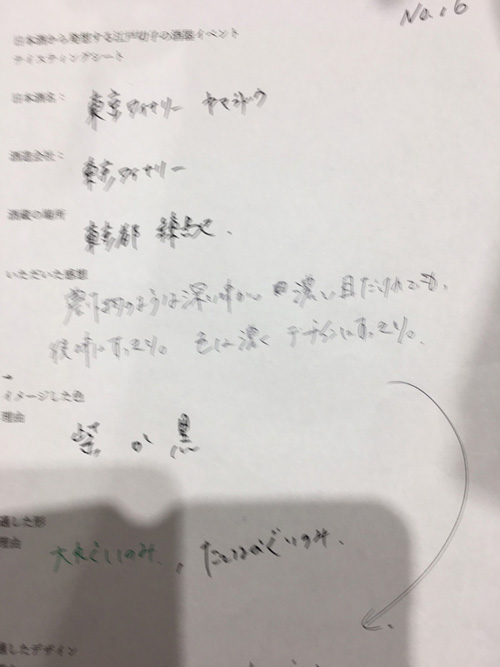 No.16
日本酒から発想する江戸切子の酒器イベント
テイスティングシート
日本酒名：
東京ワイナリー ヤマソーヴ
酒造会社：
東京ワイナリー
酒蔵の場所
東京都 練馬区.
いただいた感想
のような深い味わい 濃い目だけれども、
後味はすっきり。 色は濃く デザインはすっきり。
→
イメージした色
理由
紫 か 黒
適した形
理由
大きぐいのみ.、たつは のぐいのみ.
適したデザイン